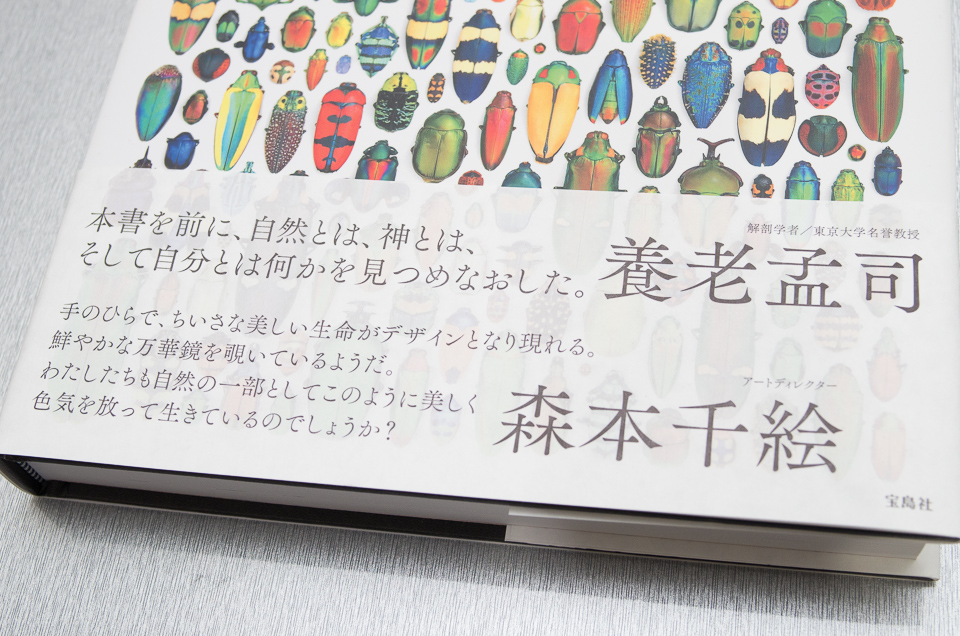 本書を前に、自然とは、神とは、
そして自分とは何かを見つめなおした。
解剖学者／東京大学名誉教授
養老孟司
手のひらで、ちいさな美しい生命がデザインとなり現れる。
鮮やかな万華鏡を覗いているようだ。
わたしたちも自然の一部としてこのように美しく
色気を放って生きているのでしょうか？
アートディレクター
森本千絵
宝島社